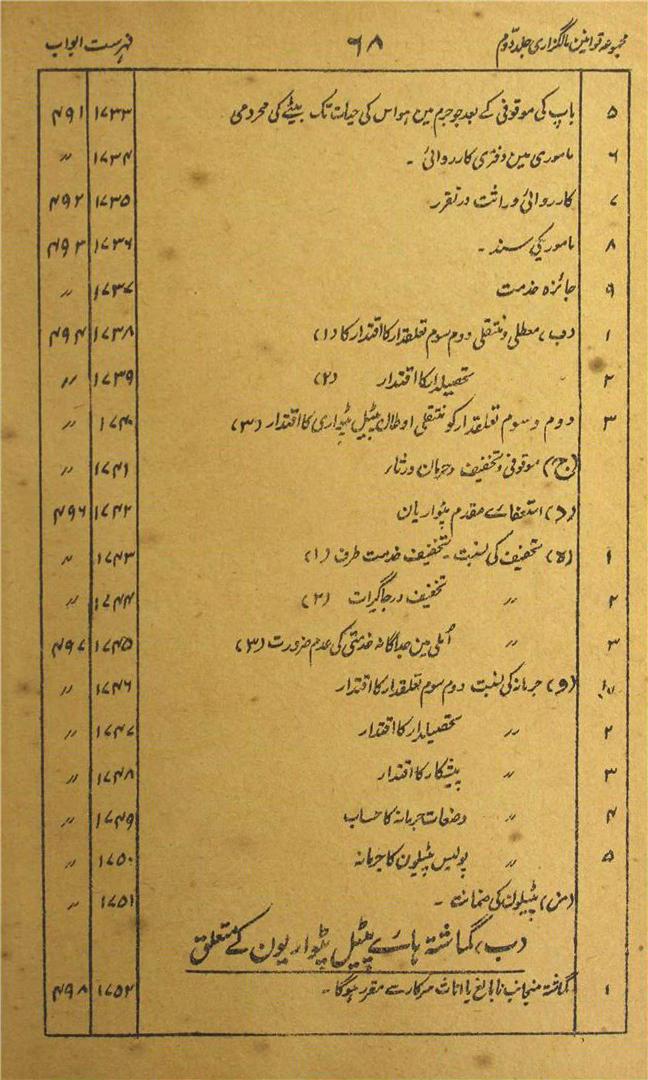 مجموعہ قوانین مالگزاری جلد دوم ۶۸ فہرست ابواب
۵ باپ کی موقوفی کے بعد جو جرم مین ہو اس کی حیات تک بیٹے کی محرومی ۱۷۳۳ ۴۹۱
۶ ماموری مین دفتری کارروائی ۔ ۱۷۳۴ 〃
۷ کارروائی وراثت و تقرر ۱۷۳۵ ۴۹۲
۸ ماموری کی سند ۔ ۱۷۳۶ ۴۹۳
۹ جائزہ خدمت ۱۷۳۷ 〃
۱ (ب) معطلی و منتقلی دوم سوم تعلقدار کا اقتدار کا (۱) ۱۷۳۸ ۴۹۴
۲ 〃 تحصیلدار کا اقتدار (۲) ۱۷۳۹ 〃
۳ دوم و سوم تعلقدار کو منتقلی اوطان پٹیل پٹواری کا اقتدار (۳) ۱۷۴۰ 〃
(ج) موقوفی و تخفیف و حرمان ورثاء ۱۷۴۱ 〃
(د) استعفاے مقدم پٹواریان ۱۷۴۲ ۴۹۶
۱ (ہ) تخفیف کی نسبت ۔ تخفیف خدمت طرف (۱) ۱۷۴۳ 〃
۲ 〃 تخفیف در جاگیرات (۲) ۱۷۴۴ 〃
۳ 〃 اُملی مین جداگانہ خدمتی کی عدم ضرورت (۳) ۱۷۴۵ ۴۹۷
(و) جرمانہ کی نسبت دوم سوم تعلقدار کا اقتدار ۱۷۴۶ 〃
۲ 〃 تحصیلدار کا اقتدار ۱۷۴۷ 〃
۳ 〃 پیشکار کا اقتدار ۱۷۴۸ 〃
۴ 〃 وضعات جرمانہ کا حساب ۱۷۴۹ 〃
۵ 〃 پولیس پٹیلون کا جرمانہ ۱۷۵۰ 〃
(ز) پٹیلون کی ضمانت ۔ ۱۷۵۱ 〃
(ب) گماشتہ ہاے پٹیل پٹواریون کے متعلق
۱ گماشتہ منجانب نابالغ یا اناث سرکار سے مقرر ہوگا ۔ ۱۷۵۲ ۴۹۸